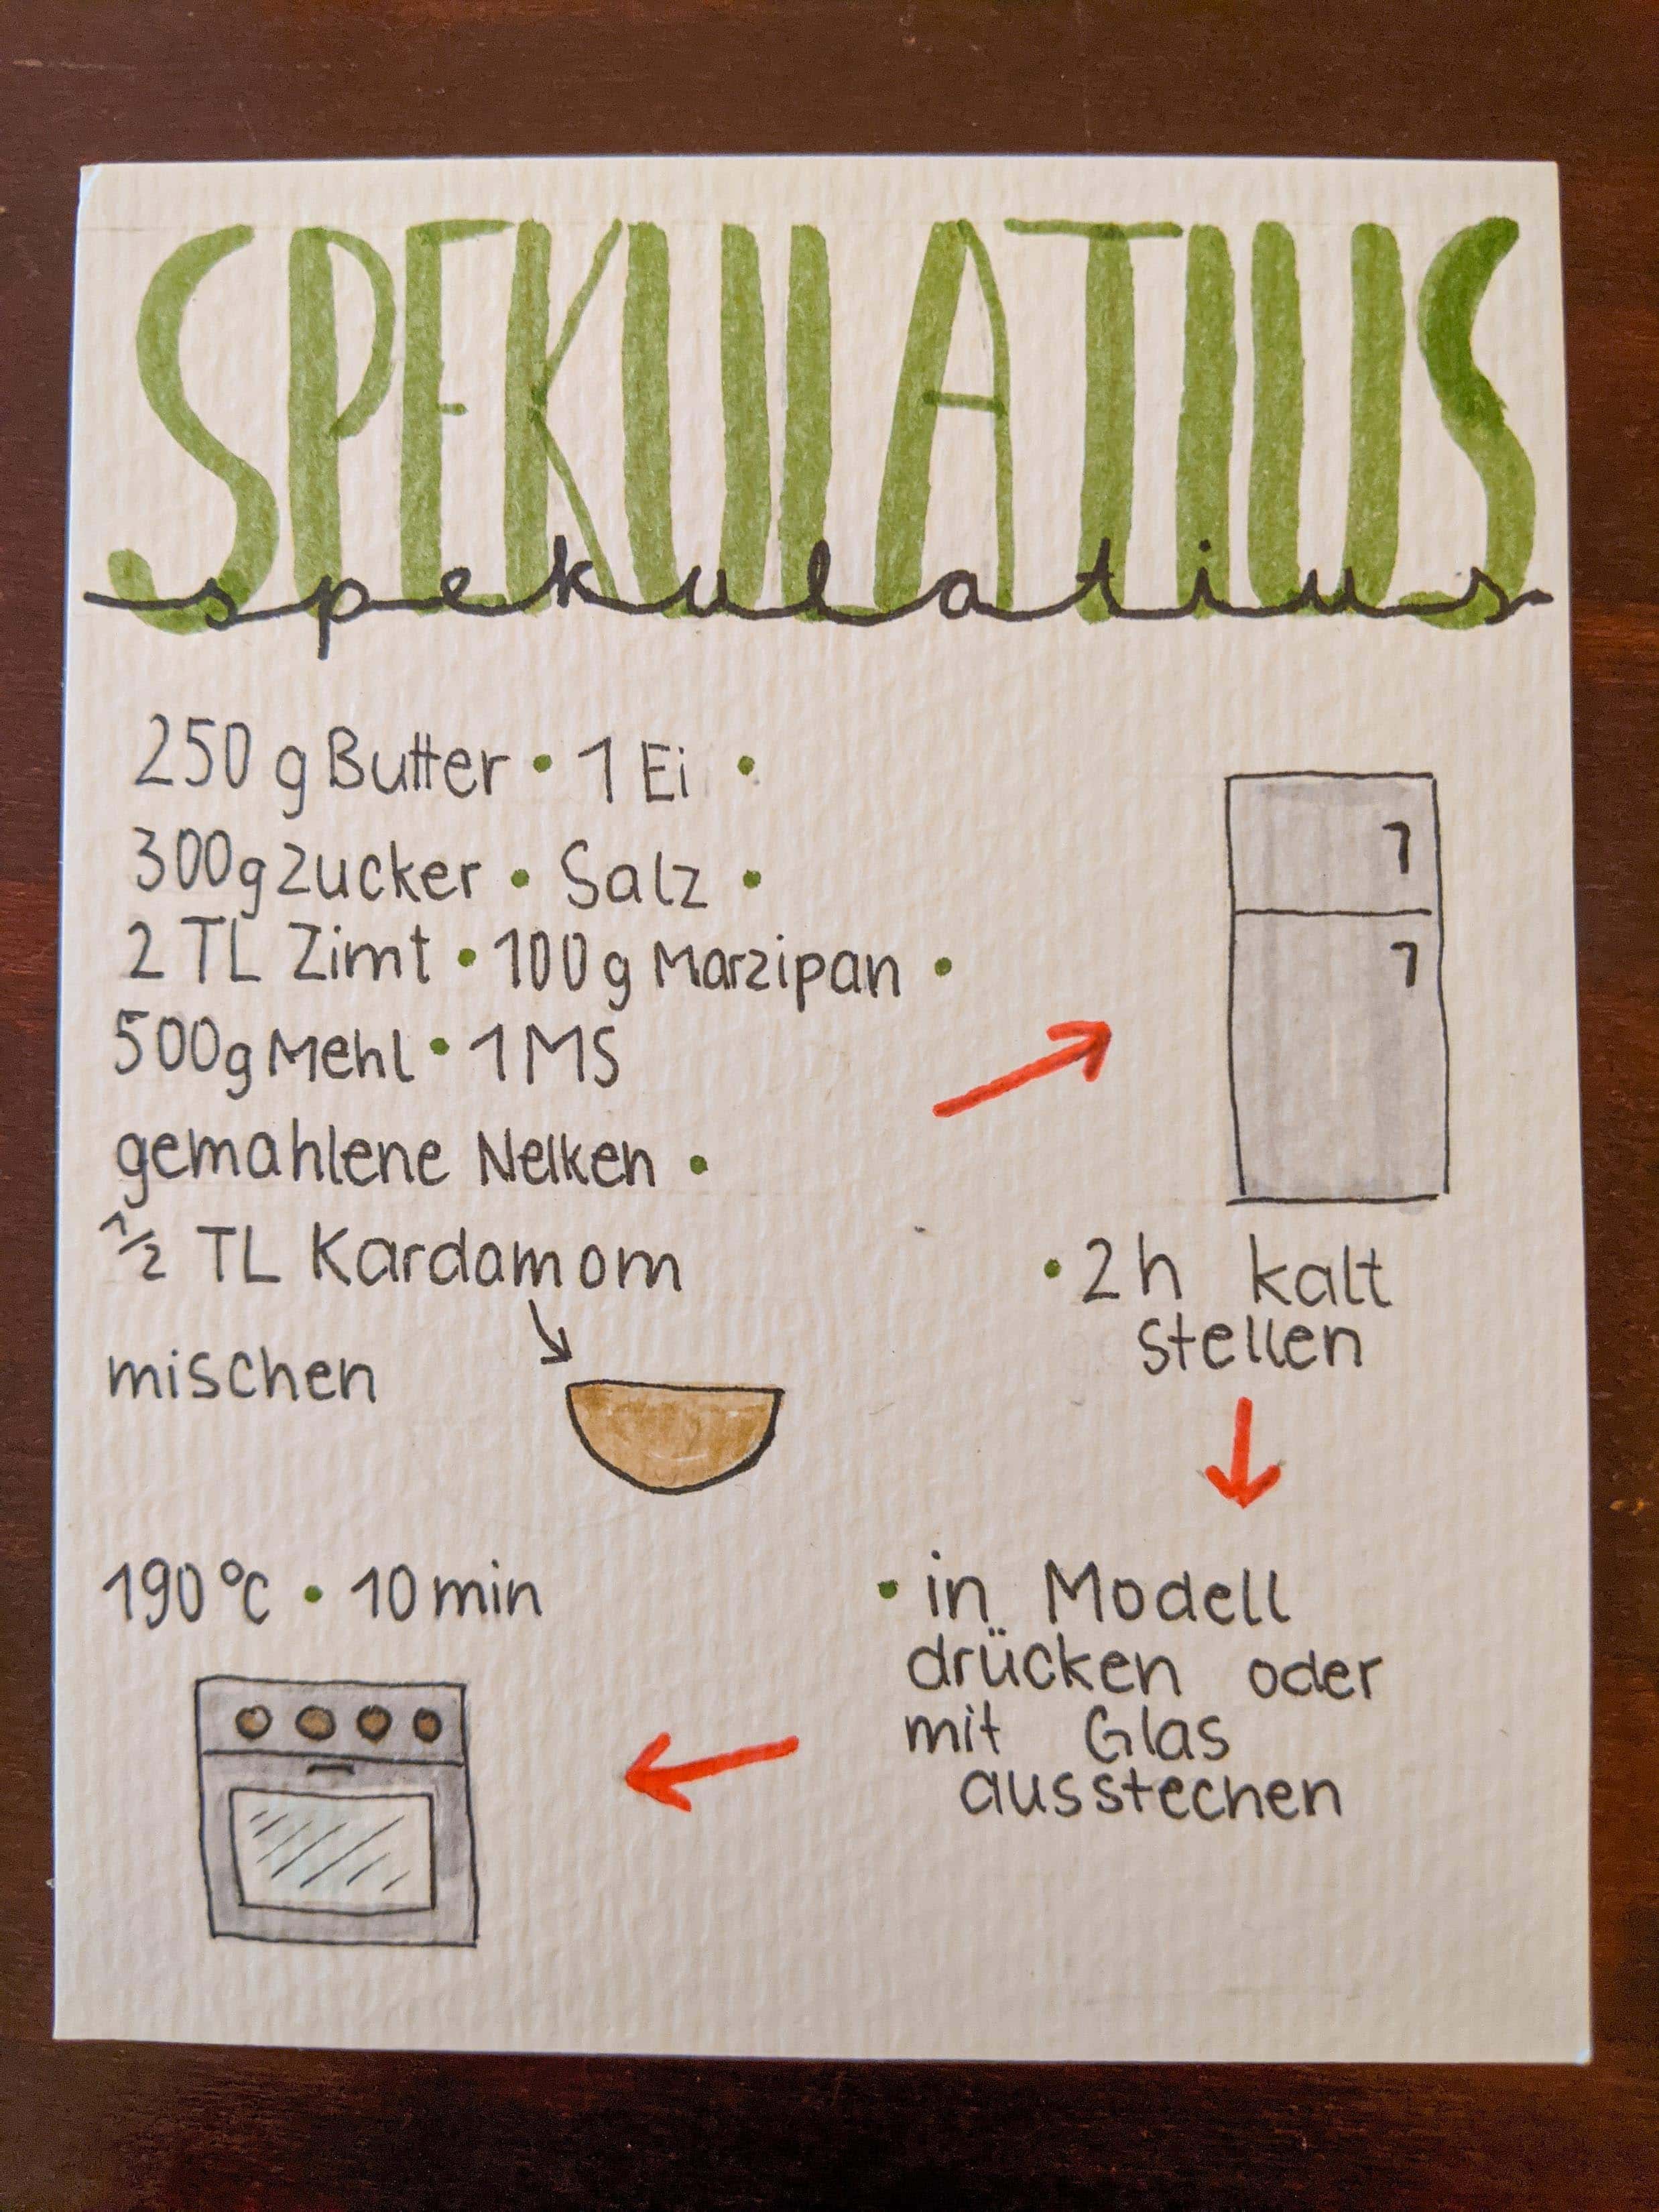 SPEKULATIUS
spekulatius
250 g Butter • 1 Ei •
300g zucker • Salz •
2 TL Zimt • 100g Marzipan •
500g Mehl • 1 MS
gemahlene Nelken •
1/2 TL Kardamom
mischen
• 2h kalt
stellen
• in Modell
drücken oder
mit Glas
ausstechen
190°C • 10 min